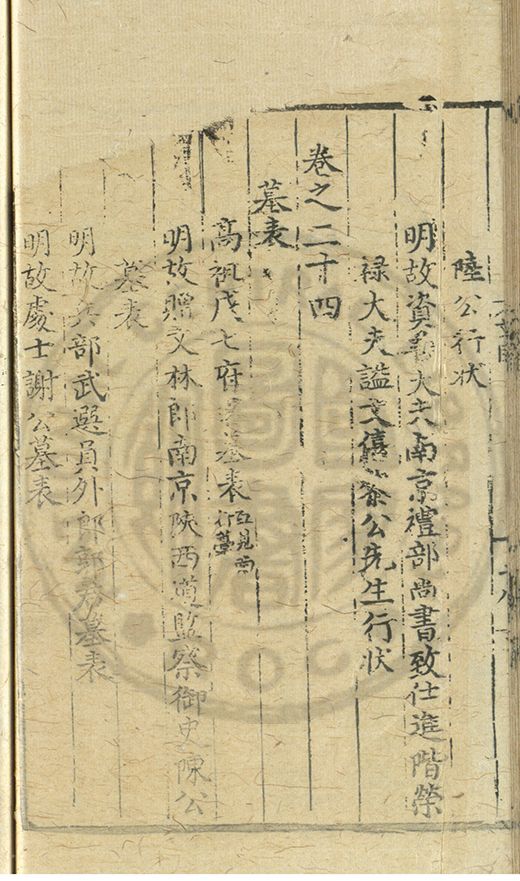 陸公行状
明故資善大夫南京禮部尚書致仕進階榮
禄大夫謚文僖公先生行状
卷之二十四
墓表
高祖戊七府君墓表
明故贈文林郎南京陝西道監察御史陳公
墓表
明故兵部武選員外郎郭君墓表
明故處士謝公墓表